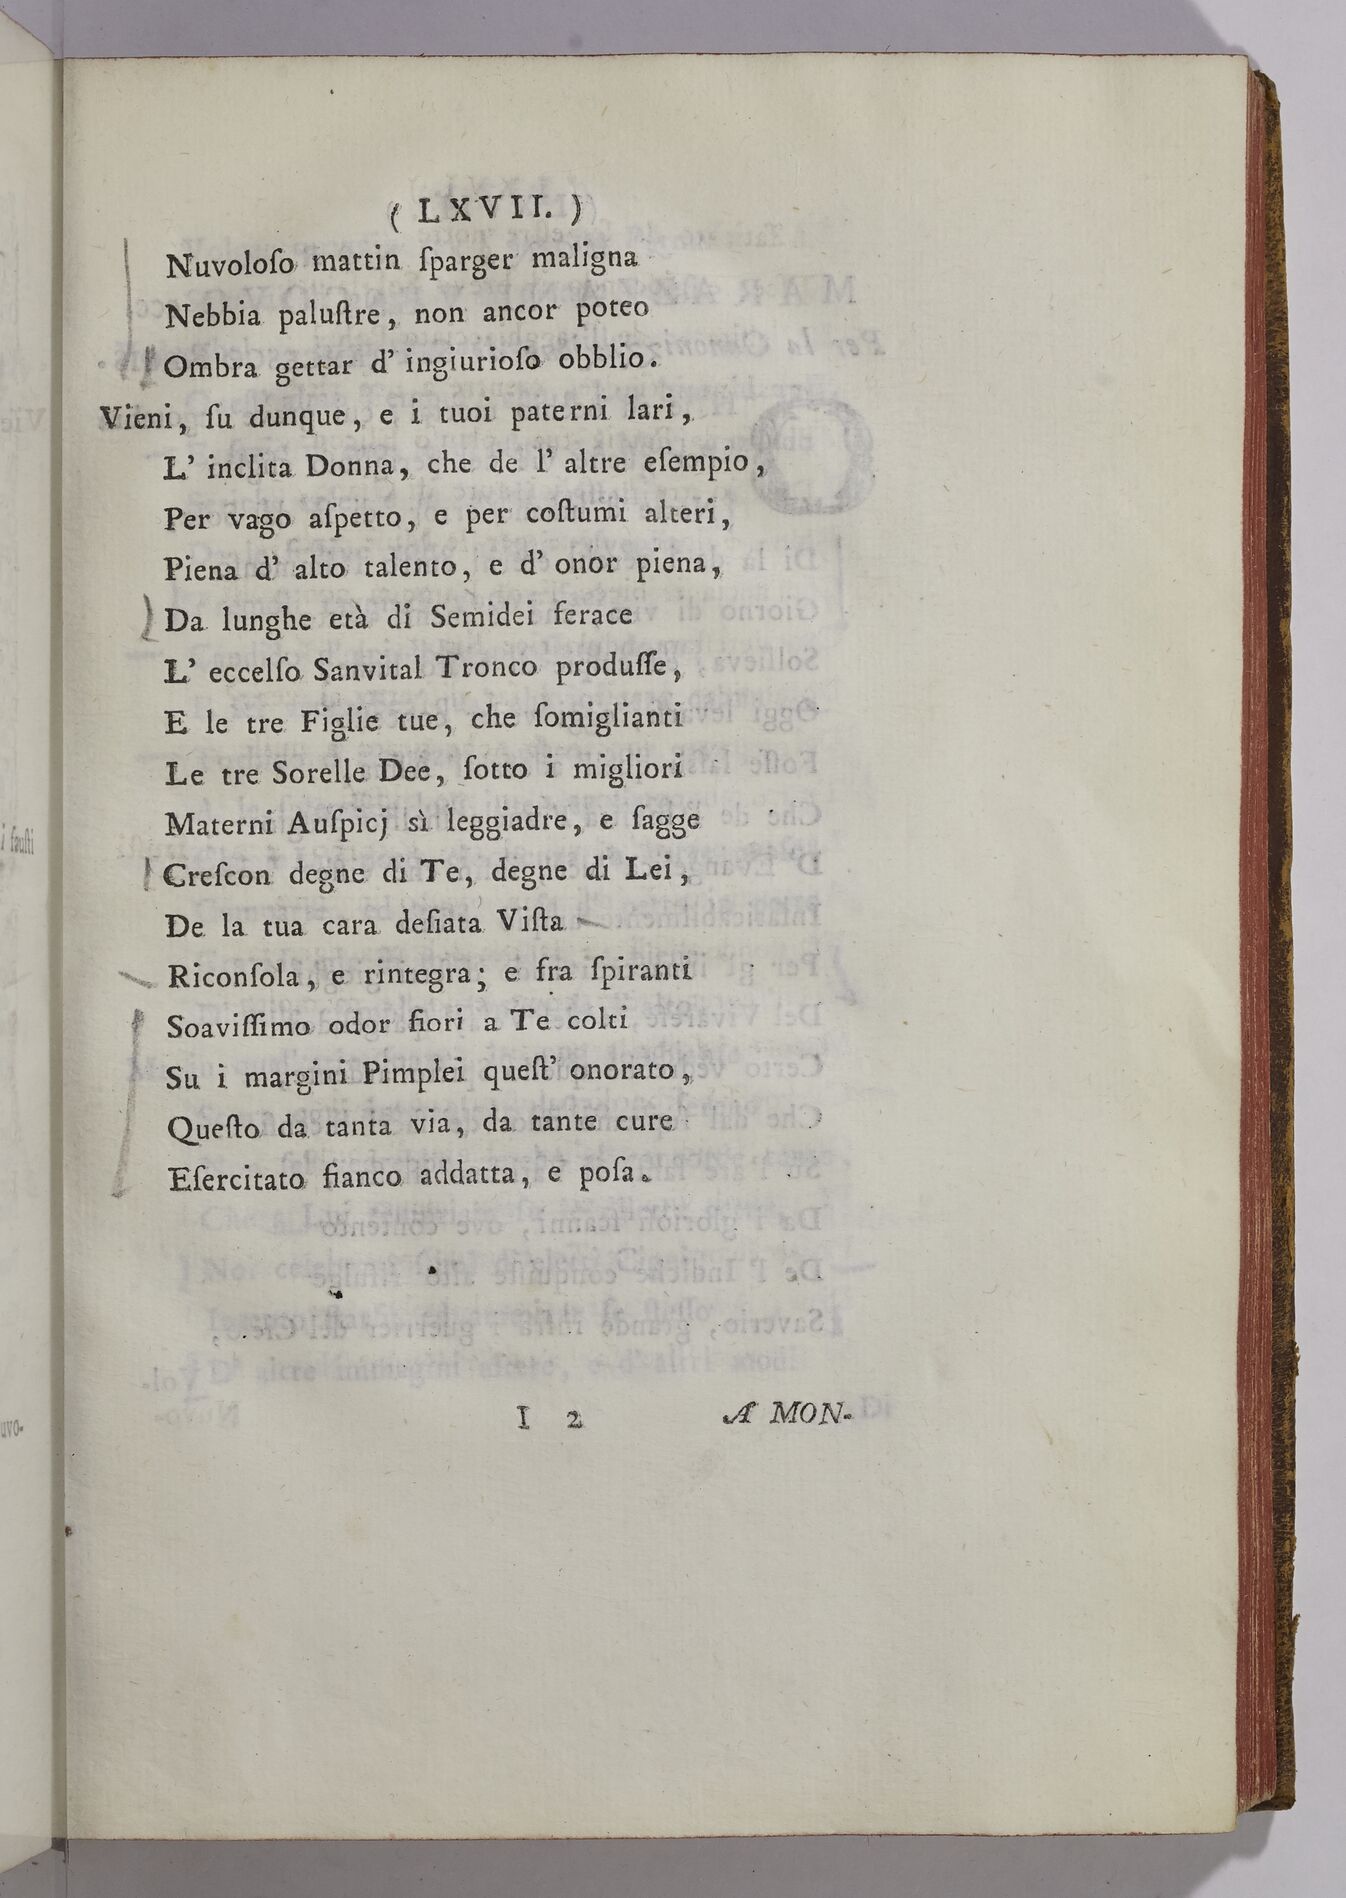 ( LXVII. )
Nuvoloſo mattin ſparger maligna
Nebbia paluſtre, non ancor poteo
Ombra gettar d' ingiurioſo obblio.
Vieni, ſu dunque, e i tuoi paterni lari,
L' inclita Donna, che de l' altre eſempio,
Per vago aſpetto, e per coſtumi alteri,
Piena d' alto talento, e d' onor piena,
Da lunghe età di Semidei ferace
L' eccelſo Sanvital Tronco produſſe,
E le tre Figlie tue, che ſomiglianti
Le tre Sorelle Dee, ſotto i migliori
Materni Auſpicj sì leggiadre, e ſagge
Creſcon degne di Te, degne di Lei,
De la tua cara deſiata Viſta
Riconſola, e rintegra; e fra ſpiranti
Soaviſſimo odor fiori a Te colti
Su i margini Pimplei queſt' onorato,
Queſto da tanta via, da tante cure
Eſercitato fianco addatta, e poſa.
I 2 A MON-